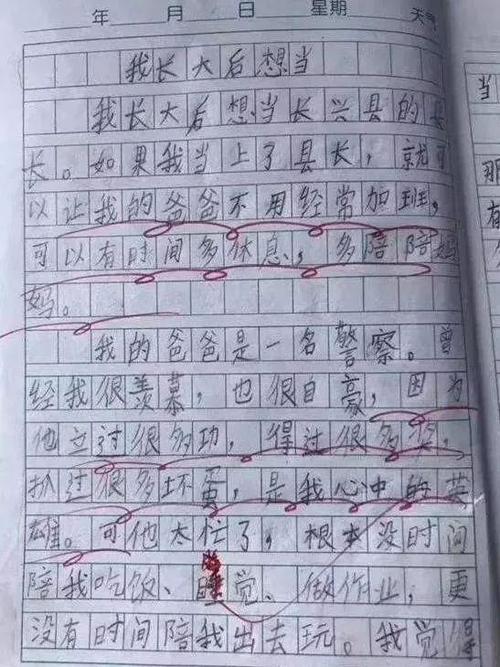 年 月 日 星期 天气
我长大后想当
我长大后想当长兴县的县
长。如果我当上了县长，就可
以让我的爸爸不用经常加班，
可以有时间多休息，多陪陪妈
妈。
我的爸爸是一名警察。曾
经我很羡慕，也很自豪，因为
他立过很多功，得过很多奖，
扒过很多坏蛋，是我心中的英
雄。可他太忙了，根本没时间
陪我吃饭、睡觉、做作业，更
没有时间陪我出去玩。我觉得
当
那
有